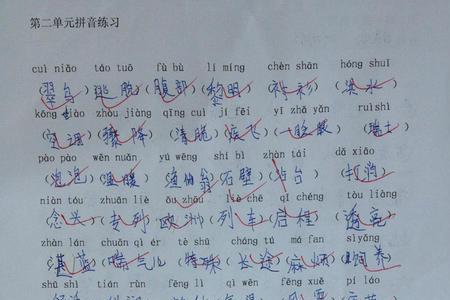 第二单元拼音练习
cuì niǎo táo tuō fù bù lí míng chèn shān hóng shuǐ
(翠鸟)(逃脱)(腹部)(黎明)(衬衫)(洪水)
kōng diào zhòu jiàng qīng cuì jī fēi yī zhǎ yǎn ruìshì
(空调)(骤降)(清脆)( )(一眨眼)(瑞士)
pào pào wēn nuǎn yú wēng shí bì zhàn tái dǎ xiāo
(泡泡)(温暖)(渔翁)(石壁)(站台)(打消)
niàn tóu zhuān liè ōu zhōu liè chē qǐ chéng tòu liàng
(念头)(专列)(欧洲)(列车)(启程)(透亮)
zhàn lán chuǎn qì ér tè shū cháng tú má fan sìyǎng
(湛蓝)(喘气儿)(特殊)(长途)(麻烦)(饲养)
shū shì tián rùn fēng lì wēn dù qì hòu